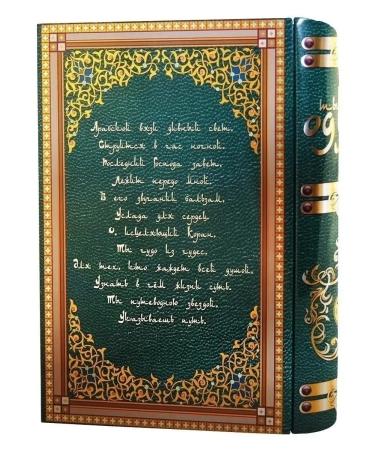 Арабской вязи дивный свет,
Струится в час ночной.
Последний Господа завет,
Лежит передо мной.
В его звучании бальзам,
Услада для сердец
О, исцеляющий Коран,
Ты чудо из чудес.
Для тех, кто жаждет всей душой,
Узнать в чём жизни суть.
Ты путеводною звездой,
Указываешь путь.